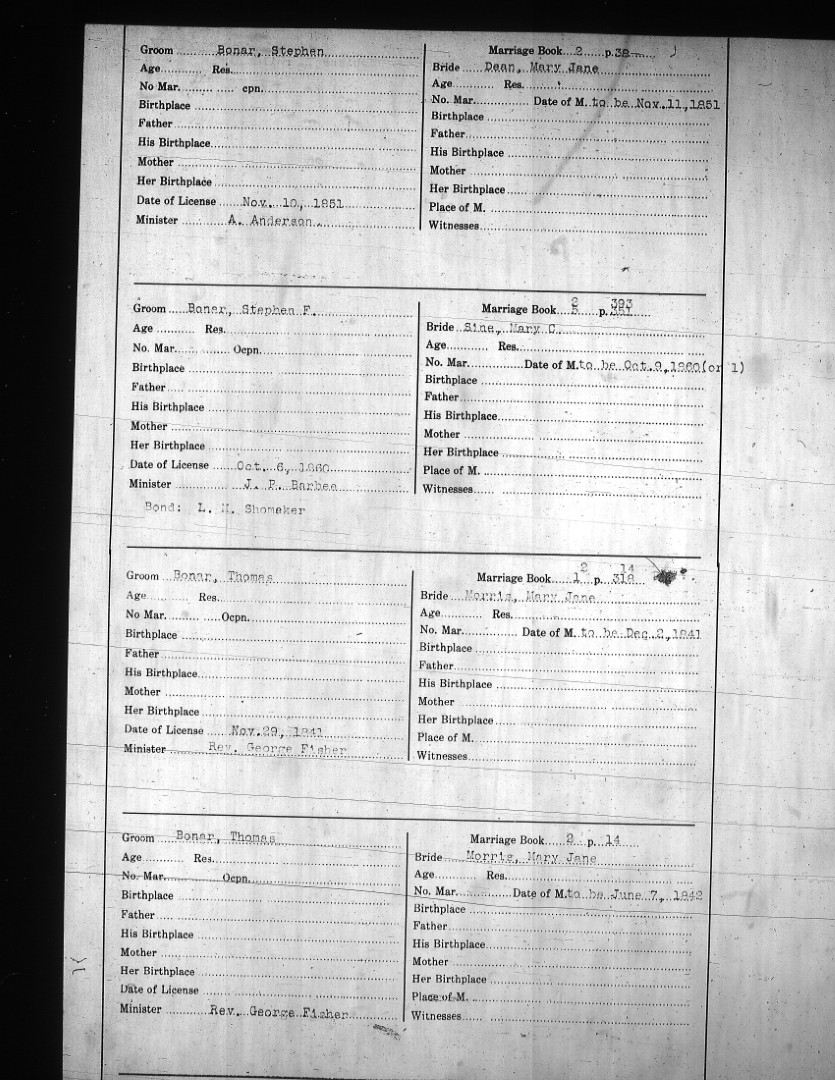 Groom Bonar, Stephen
Age Res.
No Mar. cpn.
Birthplace
Father
His Birthplace
Mother
Her Birthplace
Date of License Nov. 10, 1851
Minister A. Anderson
Marriage Book 2 p. 38
Bride Dean, Mary Jane
Age Res.
No. Mar. Date of M. to be Nov. 11, 1851
Birthplace
Father
His Birthplace
Mother
Her Birthplace
Place of M.
Witnesses
Groom Bonar, Stephen F.
Age Res.
No. Mar. Ocpn.
Birthplace
Father
His Birthplace
Mother
Her Birthplace
Date of License Oct. 6, 1860
Minister J. P. Barbee
Bond: L. M. Shomaker
2 393
Marriage Book 5 p. 351
Bride Sine, Mary C.
Age Res.
No. Mar. Date of M. to be Oct. 9, 1860 (or 1)
Birthplace
Father
His Birthplace
Mother
Her Birthplace
Place of M.
Witnesses
Groom Bonar, Thomas
Age Res.
No Mar. Ocpn.
Birthplace
Father
His Birthplace
Mother
Her Birthplace
Date of License Nov. 29, 1841
Minister Rev. George Fisher
2 14
Marriage Book 1 p. 318
Bride Morris, Mary Jane
Age Res.
No. Mar. Date of M. to be Dec. 2, 1841
Birthplace
Father
His Birthplace
Mother
Her Birthplace
Place of M.
Witnesses
Groom Bonar, Thomas
Age Res.
No. Mar. Ocpn.
Birthplace
Father
His Birthplace
Mother
Her Birthplace
Date of License
Minister Rev. George Fisher
Marriage Book 2 p. 14
Bride Morris, Mary Jane
Age Res.
No. Mar. Date of M. to be June 7, 1842
Birthplace
Father
His Birthplace
Mother
Her Birthplace
Place of M.
Witnesses